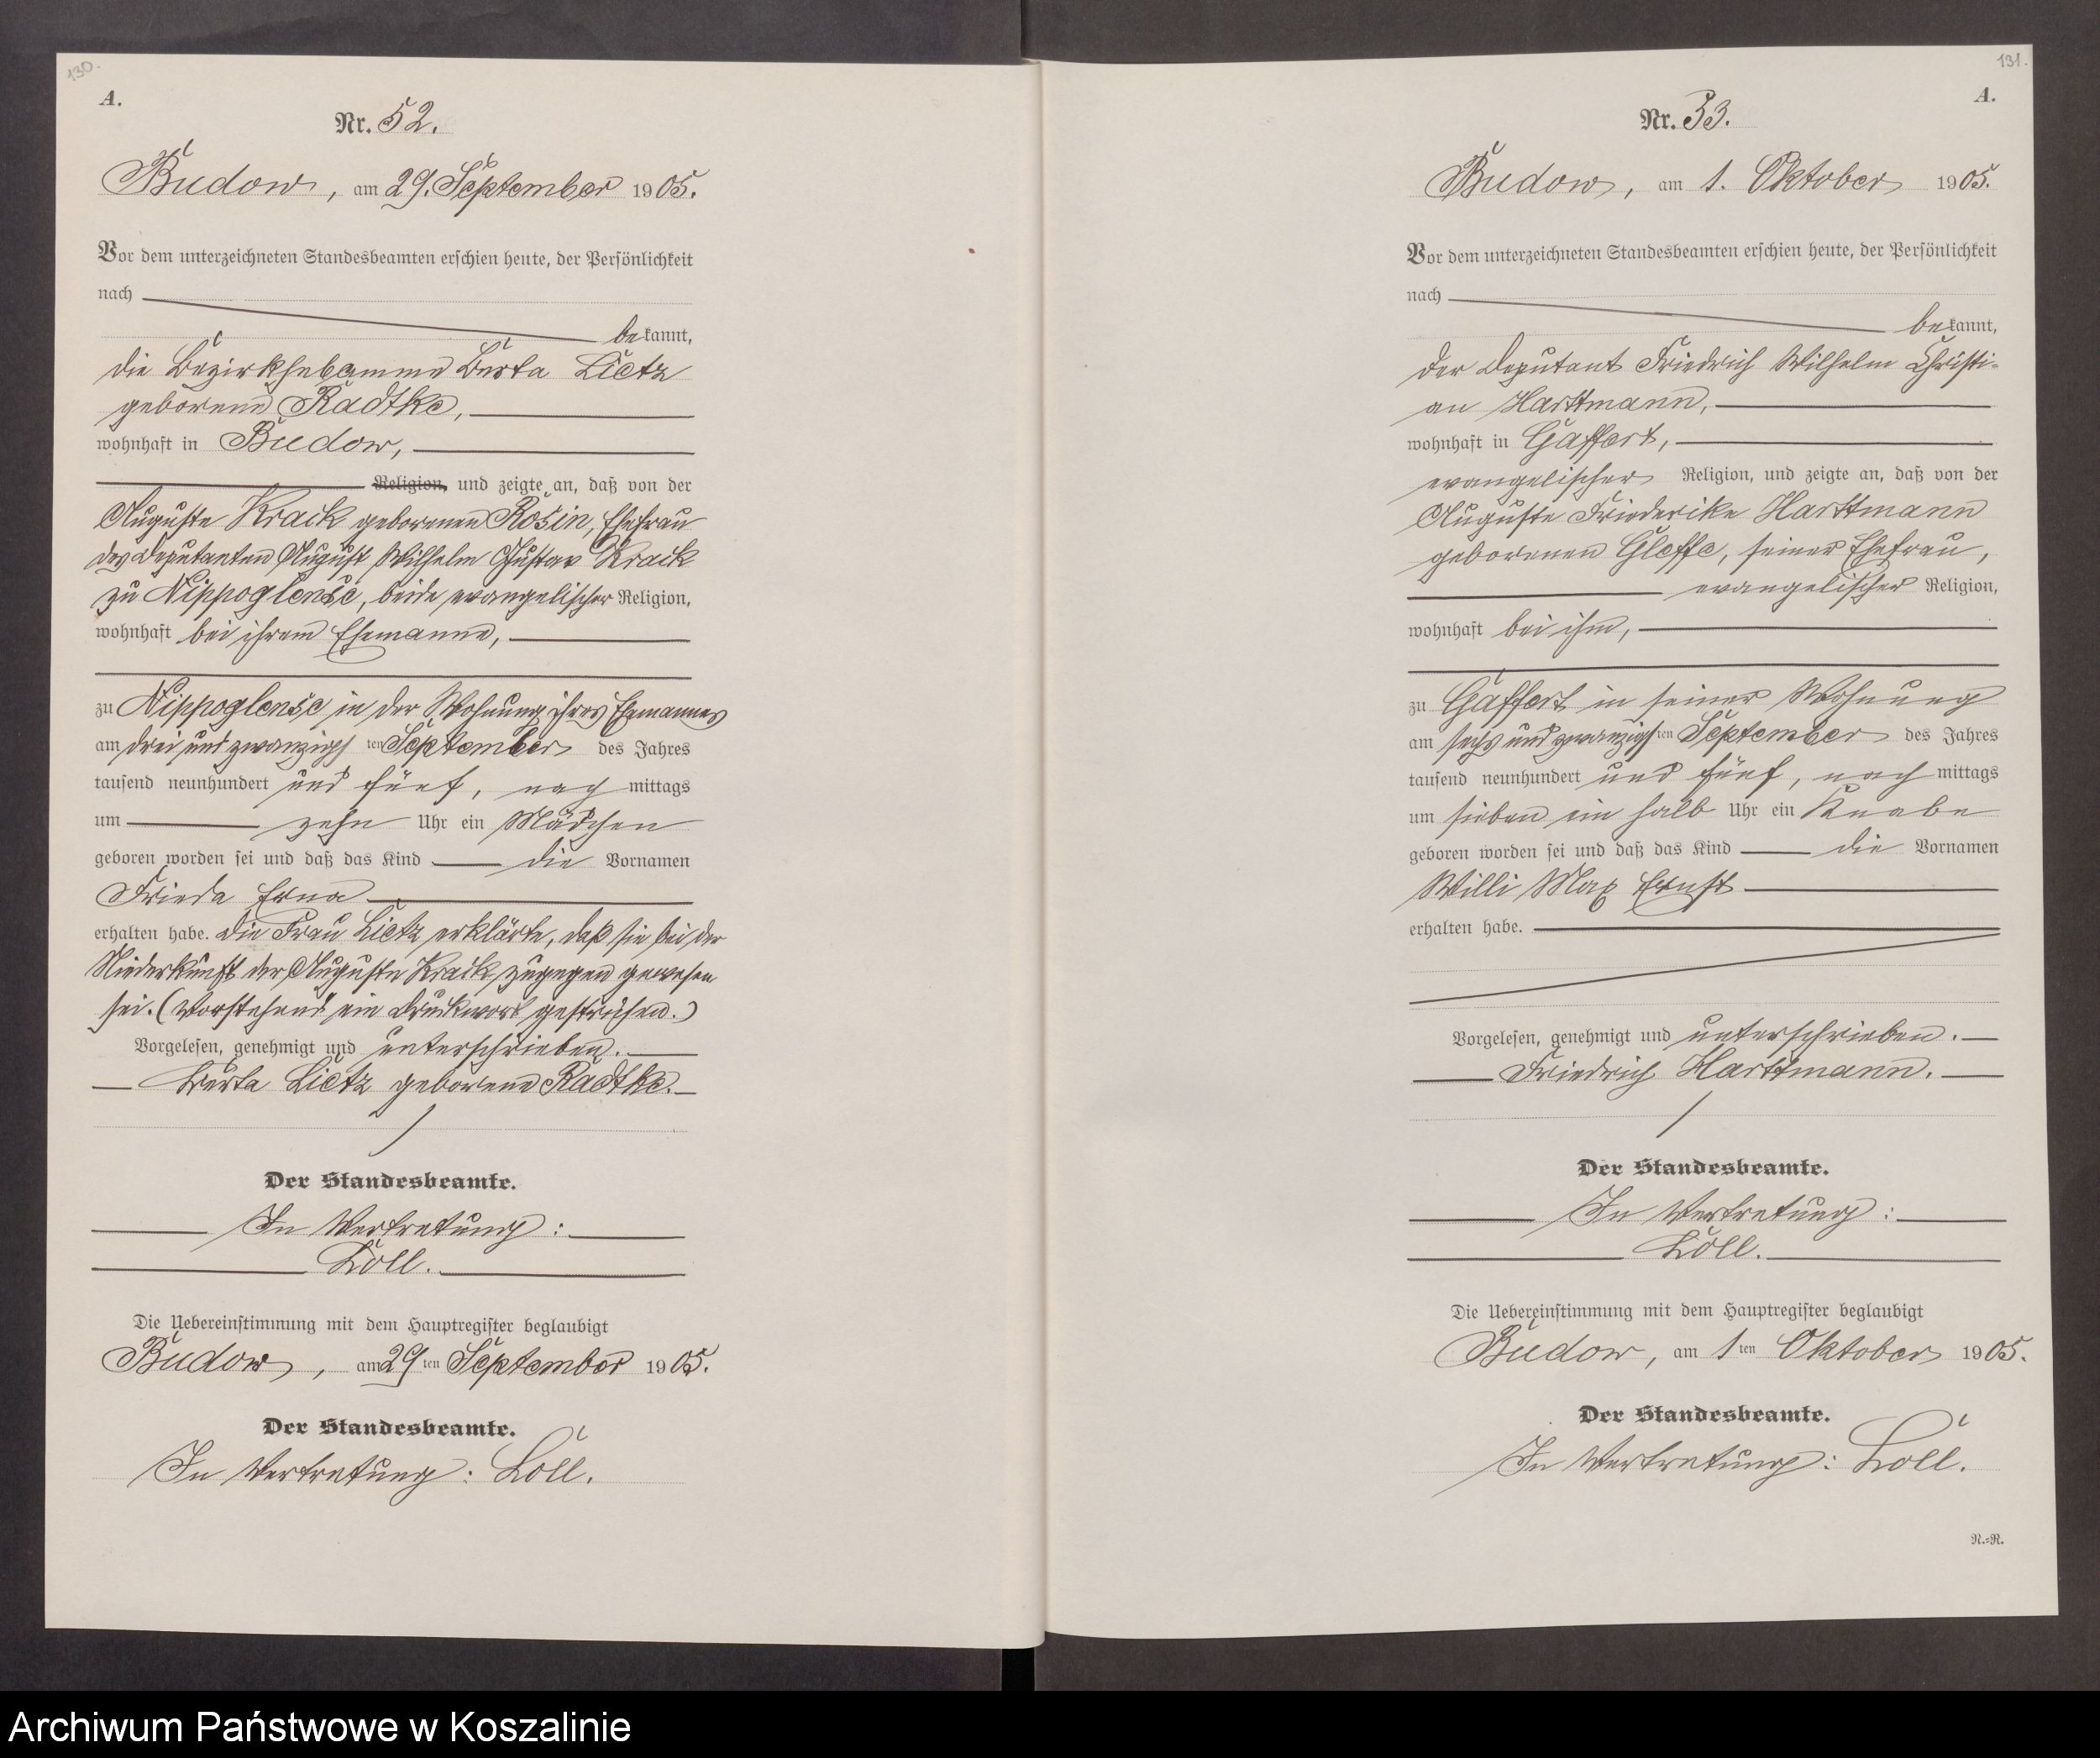 130.
A.
Nr. 52.
Budow, am 29. September 1905.
Vor dem unterzeichneten Standesbeamten erschien heute, der Persönlichkeit
nach
bekannt,
die Bezirkshebamme Berta Lietz
geborene Radtke,
wohnhaft in Budow,
Religion, und zeigte an, daß von der
Auguste Krack geborenen Rosin, Ehefrau
des Deputanten August Wilhelm Gustav Krack
zu Nippoglense, beide evangelischer Religion,
wohnhaft bei ihrem Ehemanne,
zu Nippoglense in der Wohnung ihres Ehemannes
am drei und zwanzigsten September des Jahres
tausend neunhundert und fünf, nachmittags
um zehn Uhr ein Mädchen
geboren worden sei und daß das Kind die Vornamen
Frieda Erna
erhalten habe. Die Frau Lietz erklärte, daß sie bei der
Niederkunft der Auguste Krack zugegen gewesen
sei. (Vorstehend ein Druckwort gestrichen.)
Vorgelesen, genehmigt und unterschrieben.
Berta Lietz geborene Radtke.
Der Standesbeamte.
In Vertretung:
Loll.
Die Uebereinstimmung mit dem Hauptregister beglaubigt
Budow, am 29ten September 1905.
Der Standesbeamte.
In Vertretung: Loll.
131.
A.
Nr. 53.
Budow, am 1. Oktober 1905.
Vor dem unterzeichneten Standesbeamten erschien heute, der Persönlichkeit
nach
bekannt,
der Deputant Friedrich Wilhelm Christi-
an Harttmann,
wohnhaft in Gaffert,
evangelischer Religion, und zeigte an, daß von der
Auguste Friederike Harttmann
geborenen Gloffe, seiner Ehefrau,
evangelischer Religion,
wohnhaft bei ihm,
zu Gaffert in seiner Wohnung
am sechs und zwanzigsten September des Jahres
tausend neunhundert und fünf, nachmittags
um sieben ein halb Uhr ein Knabe
geboren worden sei und daß das Kind die Vornamen
Willi Max Ernst
erhalten habe.
Vorgelesen, genehmigt und unterschrieben.
Friedrich Harttmann.
Der Standesbeamte.
In Vertretung:
Loll.
Die Uebereinstimmung mit dem Hauptregister beglaubigt
Budow, am 1ten Oktober 1905.
Der Standesbeamte.
In Vertretung: Loll.
N.=R.
Archiwum Państwowe w Koszalinie